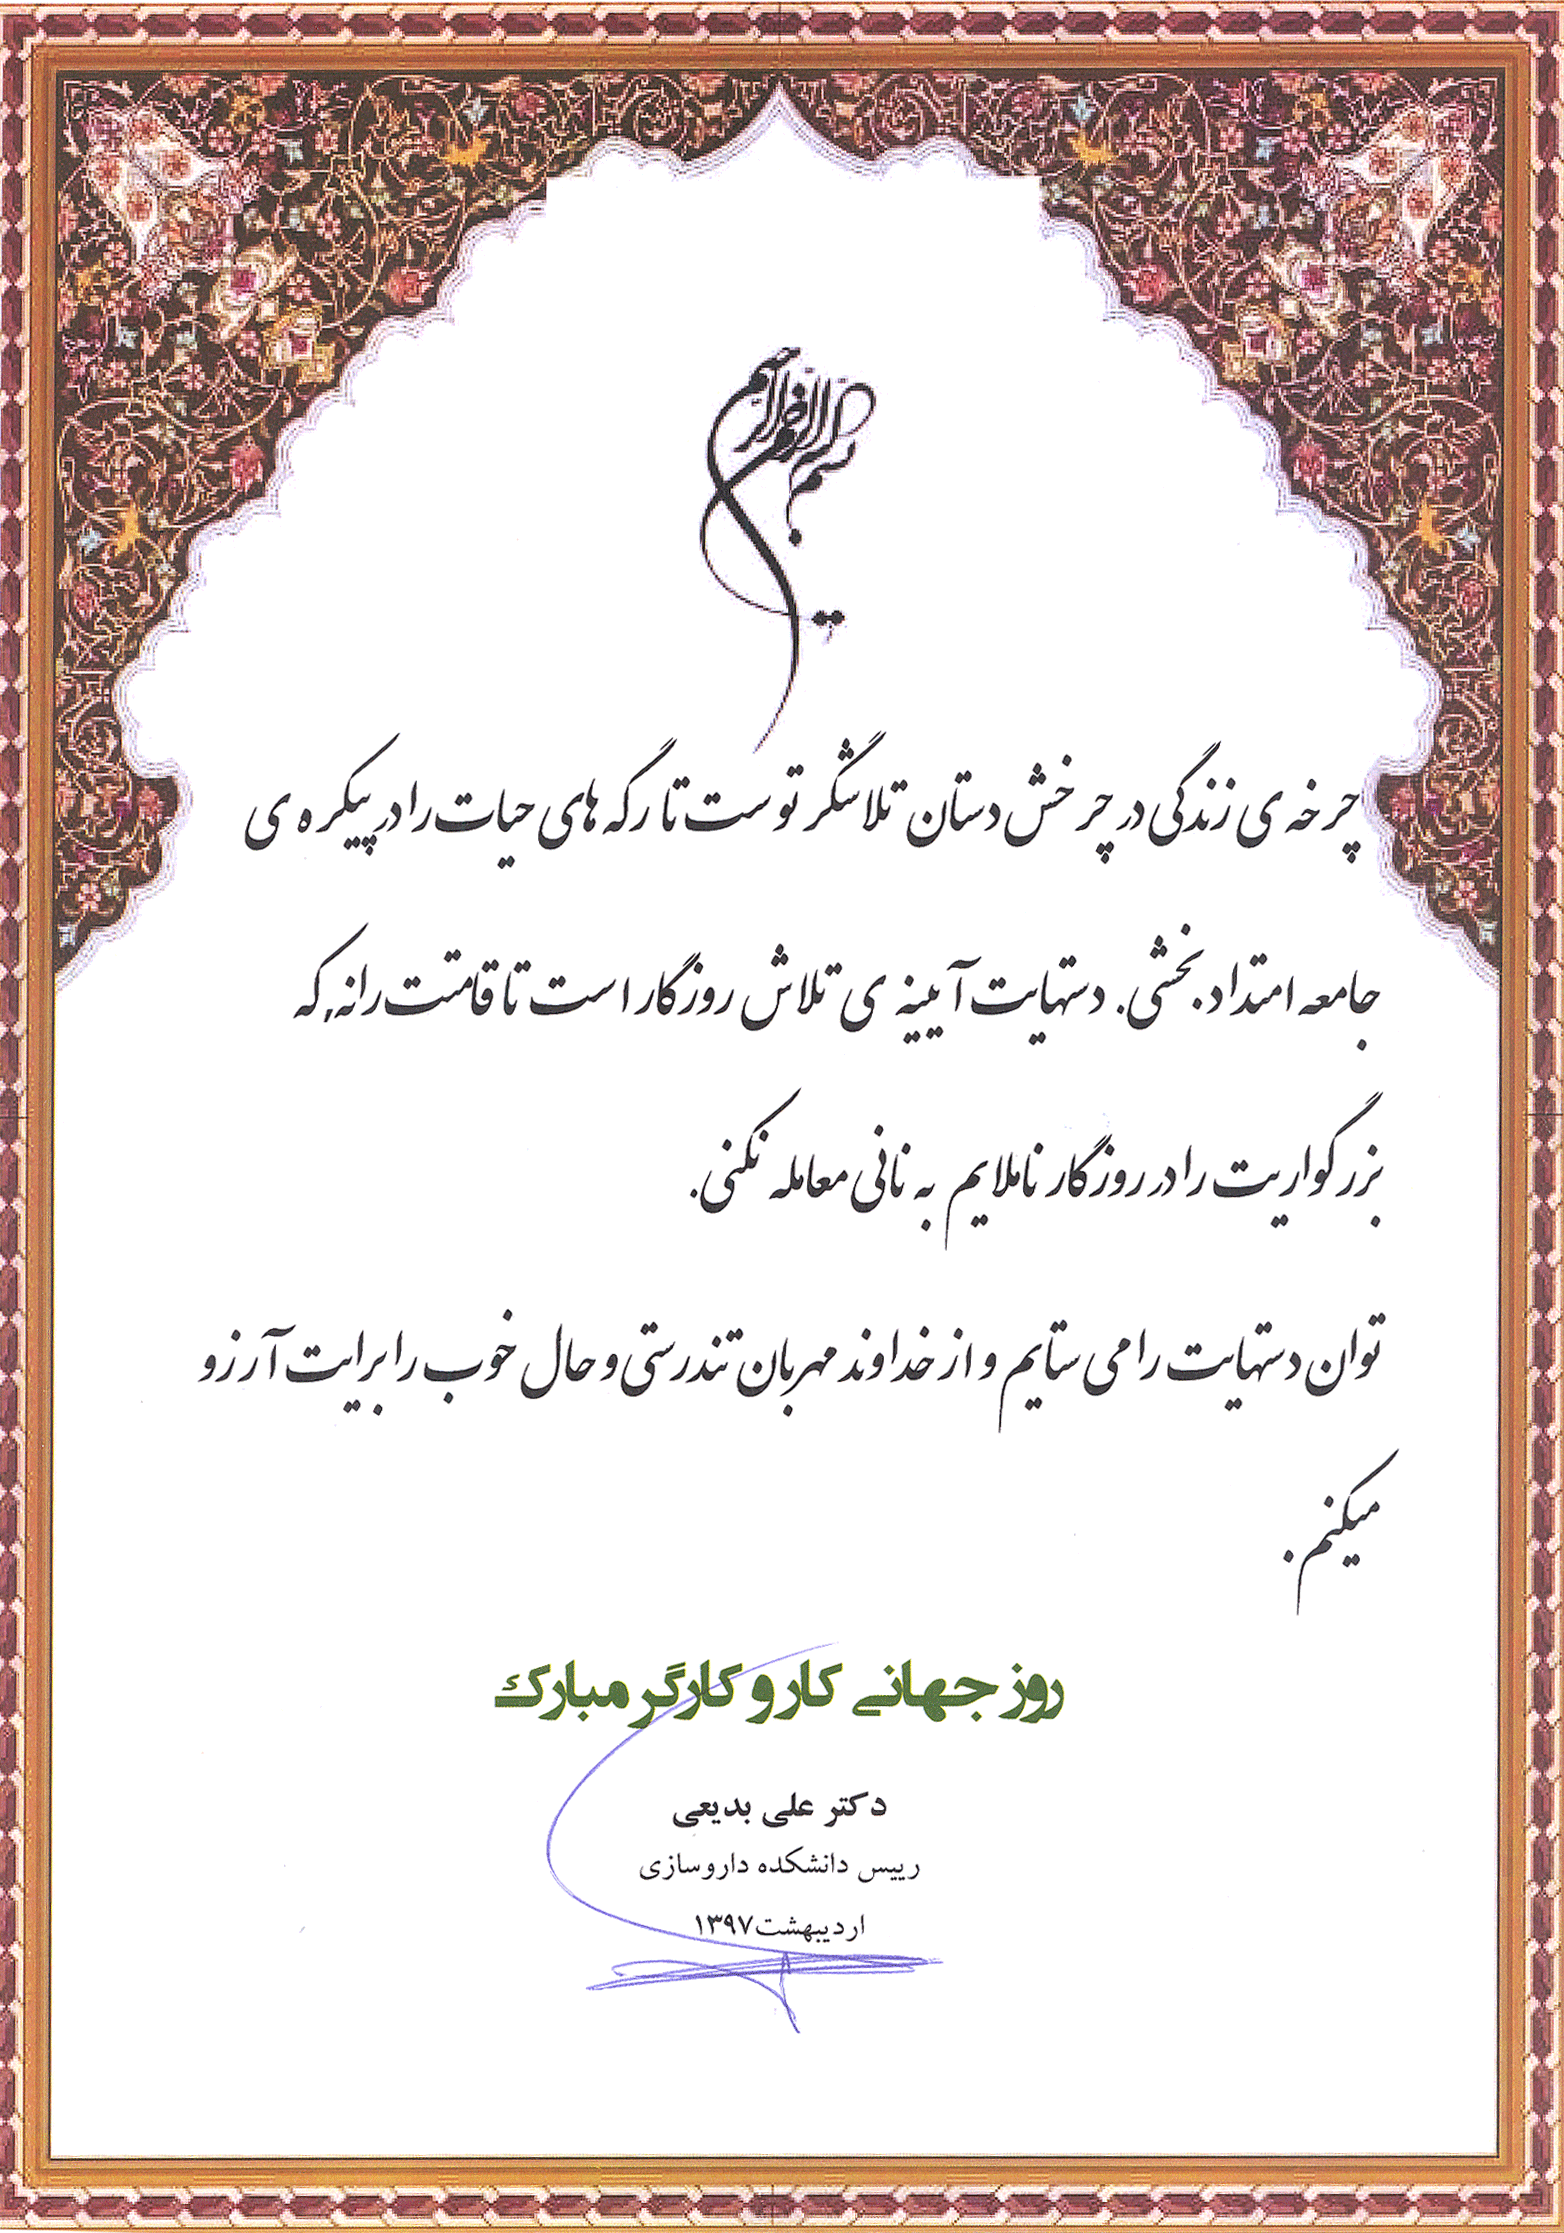 بسم الله الرحمن الرحیم
چرخه ی زندگی در چرخش دستان تلاشگر توست تا رگه های حیات را در پیکره ی
جامعه امتداد بخشی. دستهایت آیینه ی تلاش روزگار است تا قامتت را نه که
بزرگواریت را در روزگار ناملایم به نانی معامله نکنی.
توان دستهایت را می ستایم و از خداوند مهربان تندرستی و حال خوب را برایت آرزو
میکنم.
روز جهانی کار و کارگر مبارک
دکتر علی بدیعی
رییس دانشکده داروسازی
اردیبهشت۱۳۹۷